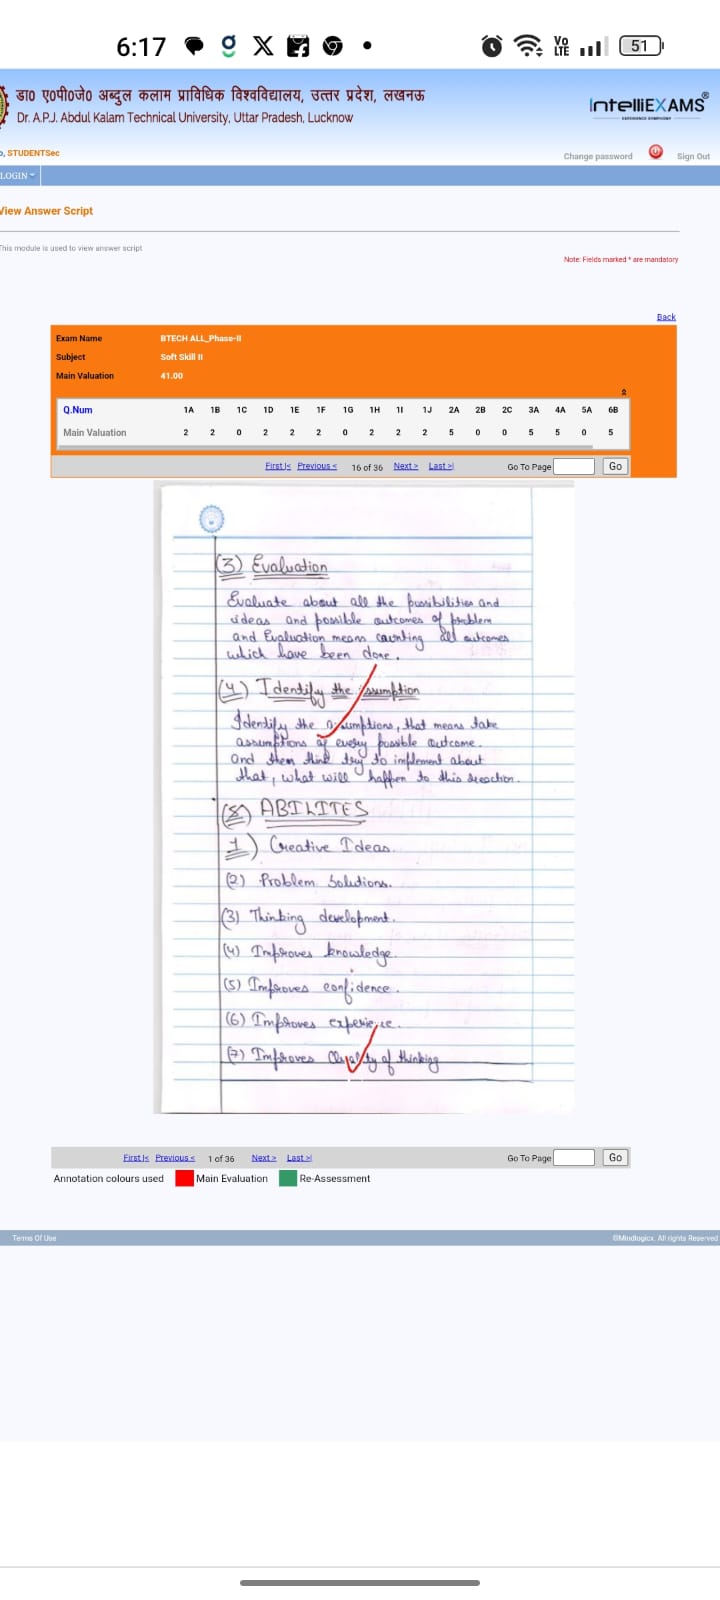 6:17
Vo LTE
51
डा० ए०पी०जे० अब्दुल कलाम प्राविधिक विश्वविद्यालय, उत्तर प्रदेश, लखनऊ
Dr. A.P.J. Abdul Kalam Technical University, Uttar Pradesh, Lucknow
IntelliEXAMS®
o, STUDENTSec
Change password Sign Out
LOGIN
View Answer Script
This module is used to view answer script
Note: Fields marked * are mandatory
Back
Exam Name BTECH ALL_Phase-II
Subject Soft Skill II
Main Valuation 41.00
Q.Num 1A 1B 1C 1D 1E 1F 1G 1H 1I 1J 2A 2B 2C 3A 4A 5A 6B
Main Valuation 2 2 0 2 2 2 0 2 2 2 5 0 0 5 5 0 5
First|< Previous < 16 of 36 Next > Last >| Go To Page Go
(3) Evaluation
Evaluate about all the possibilities and
ideas and possible outcomes of problem
and Evaluation means counting all outcomes
which have been done.
(4) Identify the assumption
Identify the assumptions, that means take
assumptions of every possible outcome.
and then think try to implement about
that, what will happen to this reaction.
(8) ABILITES
1) Creative Ideas.
(2) Problem Solutions.
(3) Thinking development.
(4) Improves knowledge.
(5) Improves confidence.
(6) Improves experience.
(7) Improves Quality of thinking
First|< Previous < 1 of 36 Next > Last >| Go To Page Go
Annotation colours used Main Evaluation Re-Assessment
Terms Of Use ©Mindlogicx. All rights Reserved